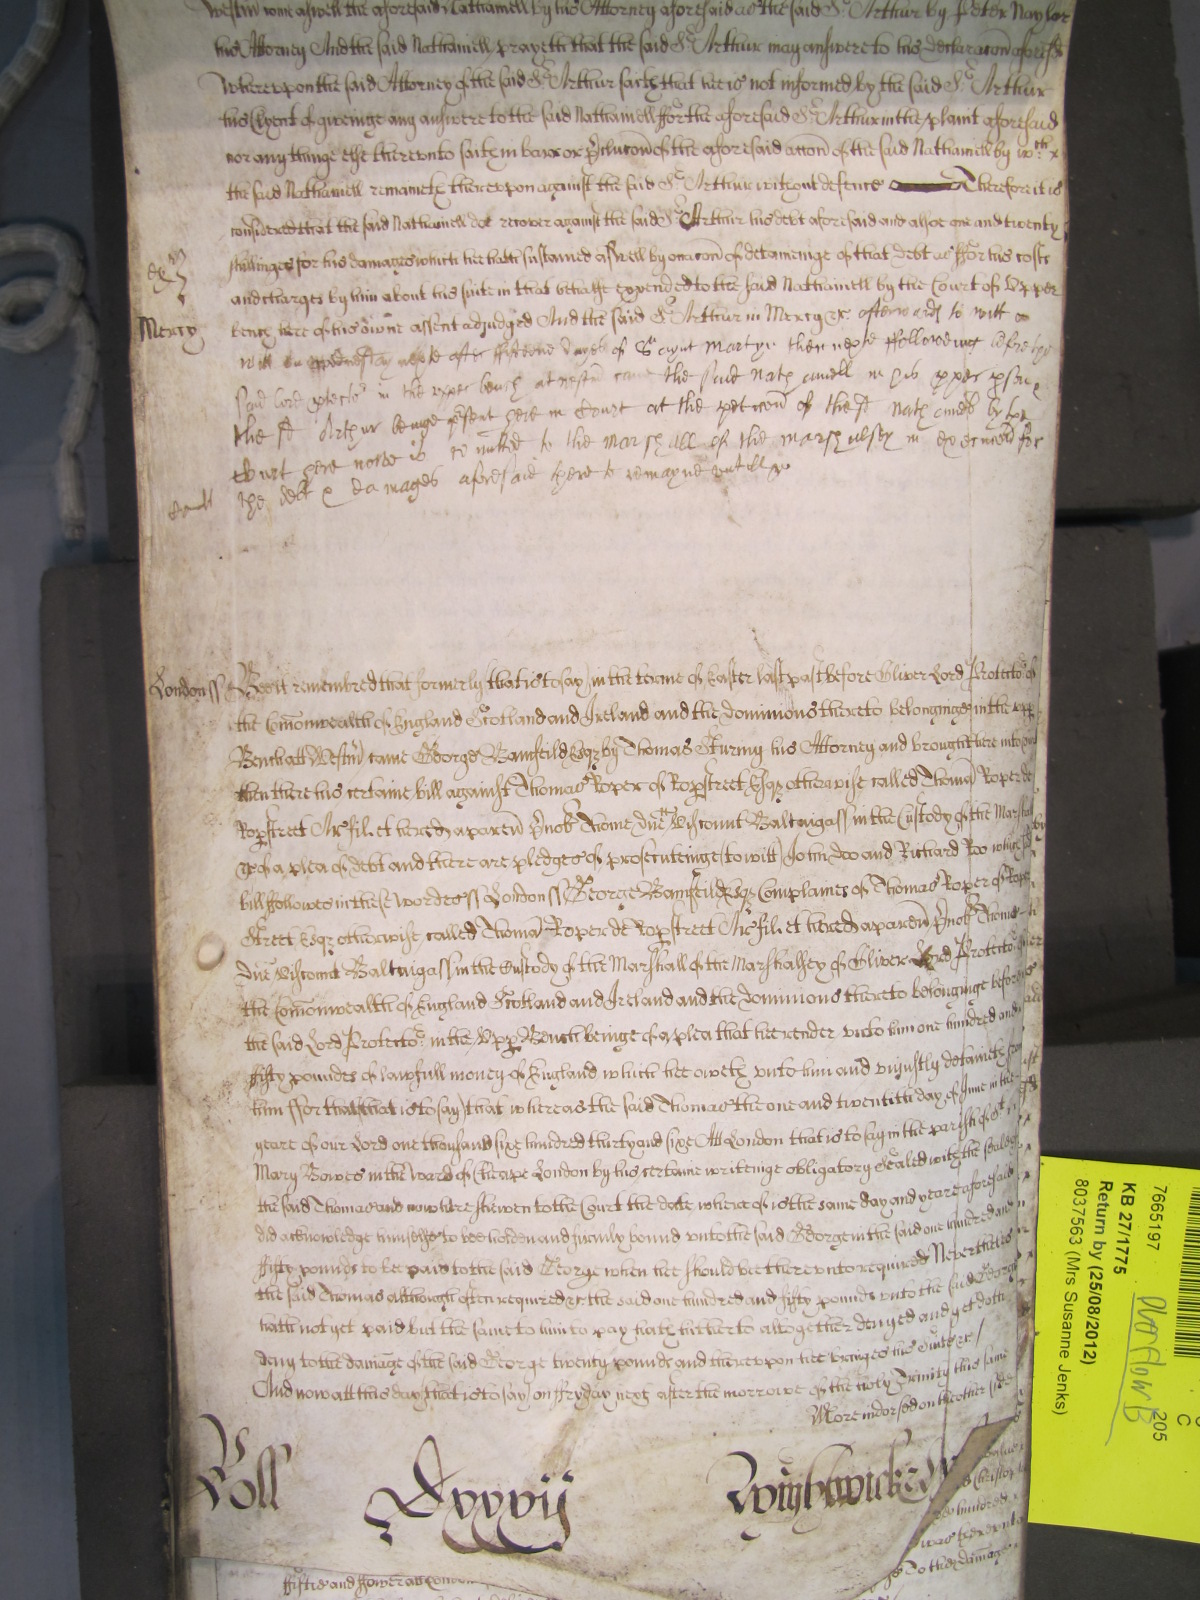 Westm come aswell the aforesaid Nathaniell by his Attorney aforesaid as the said Sr Arthur by Peter Naylor
his Attorney And the said Nathaniell prayeth that the said Sr Arthur may answere to his declaracon aforesd
Whereupon the said Attorney of the said Sr Arthur saith that hee is not informed by the said Sr Arthur
his Clyent of giveinge any answere to the said Nathaniell ffor the aforesaid Sr Arthur in the plaint aforesaid
nor any thinge else thereunto saith in barr or of the aforesaid accon of the said Nathaniell by wch
the said Nathaniell remaineth thereupon against the said Sr Arthur without defence Therefore it is
considered that the said Nathaniell doe recover against the said Sr Arthur his debt aforesaid and alsoe one and twenty
shillinges for his damages which hee hath sustained aswell by occacon of detaineinge of that debt as ffor his costs
and charges by him about his suite in that behalfe expended to the said Nathaniell by the Court of Upper
Mercy
bench here of his owne assent adjudged And the said Sr Arthur in Mercy &c afterwards to witt on
next after fifteene dayes of Saynt Martyn then next ffollowing before the
said lord protector in the upper bench at westm came the said Nathaniell in his pper pson
the sd Arthur beinge psent here in Court at the peticon of the sd Nathaniell by the
Court here is comitted to the marshall of the marshalsey in execucon for
the debt & damages aforesaid there to remayne untill &c
London ss Bee it remembred that formerly (that is to say) in the terme of Easter last past before Oliver Lord Protector of
the Comonwealth of England Scotland and Ireland and the dominions thereto belonginge in the upp
Bench att Westm came George Bamfeild Esqr by Thomas Sturmy his Attorney and brought here into
then there his certaine bill against Thomas Roper of Ropstreet Esqr otherwise called Thoma Roper de
Ropstreet Ar fil et hered apparen pnob Thome dne Viscount Baltinglass in the Custody of the Marshall
&c of a plea of debt and there are pledges of prosecuteinge (to witt) John Doo and Richard Roo which sd
bill ffollowes in these wordes ss London ss George Bamfeild Esqr Complaines of Thomas Roper of Rope
Street Esqr otherwise called Thoma Roper de Ropstreet Ar fil et hered apparen pnob Thome
dne Viscount Baltinglass in the Custody of the Marshall of the Marshalsey of Oliver Lord Protector
the Comonwealth of England Scotland and Ireland and the dominions thereto belonginge before
the said Lord Protector in the Upp Bench beinge of a plea that hee render unto him one hundred and
ffifty poundes of lawfull money of England which hee oweth unto him and unjustly detaineth from
him ffor that (that is to say) that whereas the said Thomas the one and twentith day of June in the
yeare of our Lord one thousand sixe hundred thirty and sixe Att London that is to say in the parish of St
Mary Bowes in the Ward of Cheape London by his certaine writeinge obligatory Sealed with the seale of
the said Thomas and now here shewen to the Court the date whereof is the same day and yeare aforesaid
did acknowledge himselfe to bee holden and firmly bound unto the said George in the said one hundred and
ffifty pounds to bee paid to the said George when hee should bee thereunto required Neverthelesse
the said Thomas although often required &c the said one hundred and fifty pounds unto the said George
hath not yet paid but the same to him to pay hath hitherto altogether denyed and yet doth
deny to the damage of the said George twenty pounds and thereupon hee bringes his Suite &c
And now att this day that is to say on ffryday next after the morrowe of the holy Trinity this same
More indorsed on the other side
Roll
Dxxxvij
Wightwicke
ffiftie and ffower at London
hundred
was thereunto
to the damage
7665197
KB 27/1775
Return by (25/08/2012)
8037563 (Mrs Susanne Jenks)
205
C
Overflow B